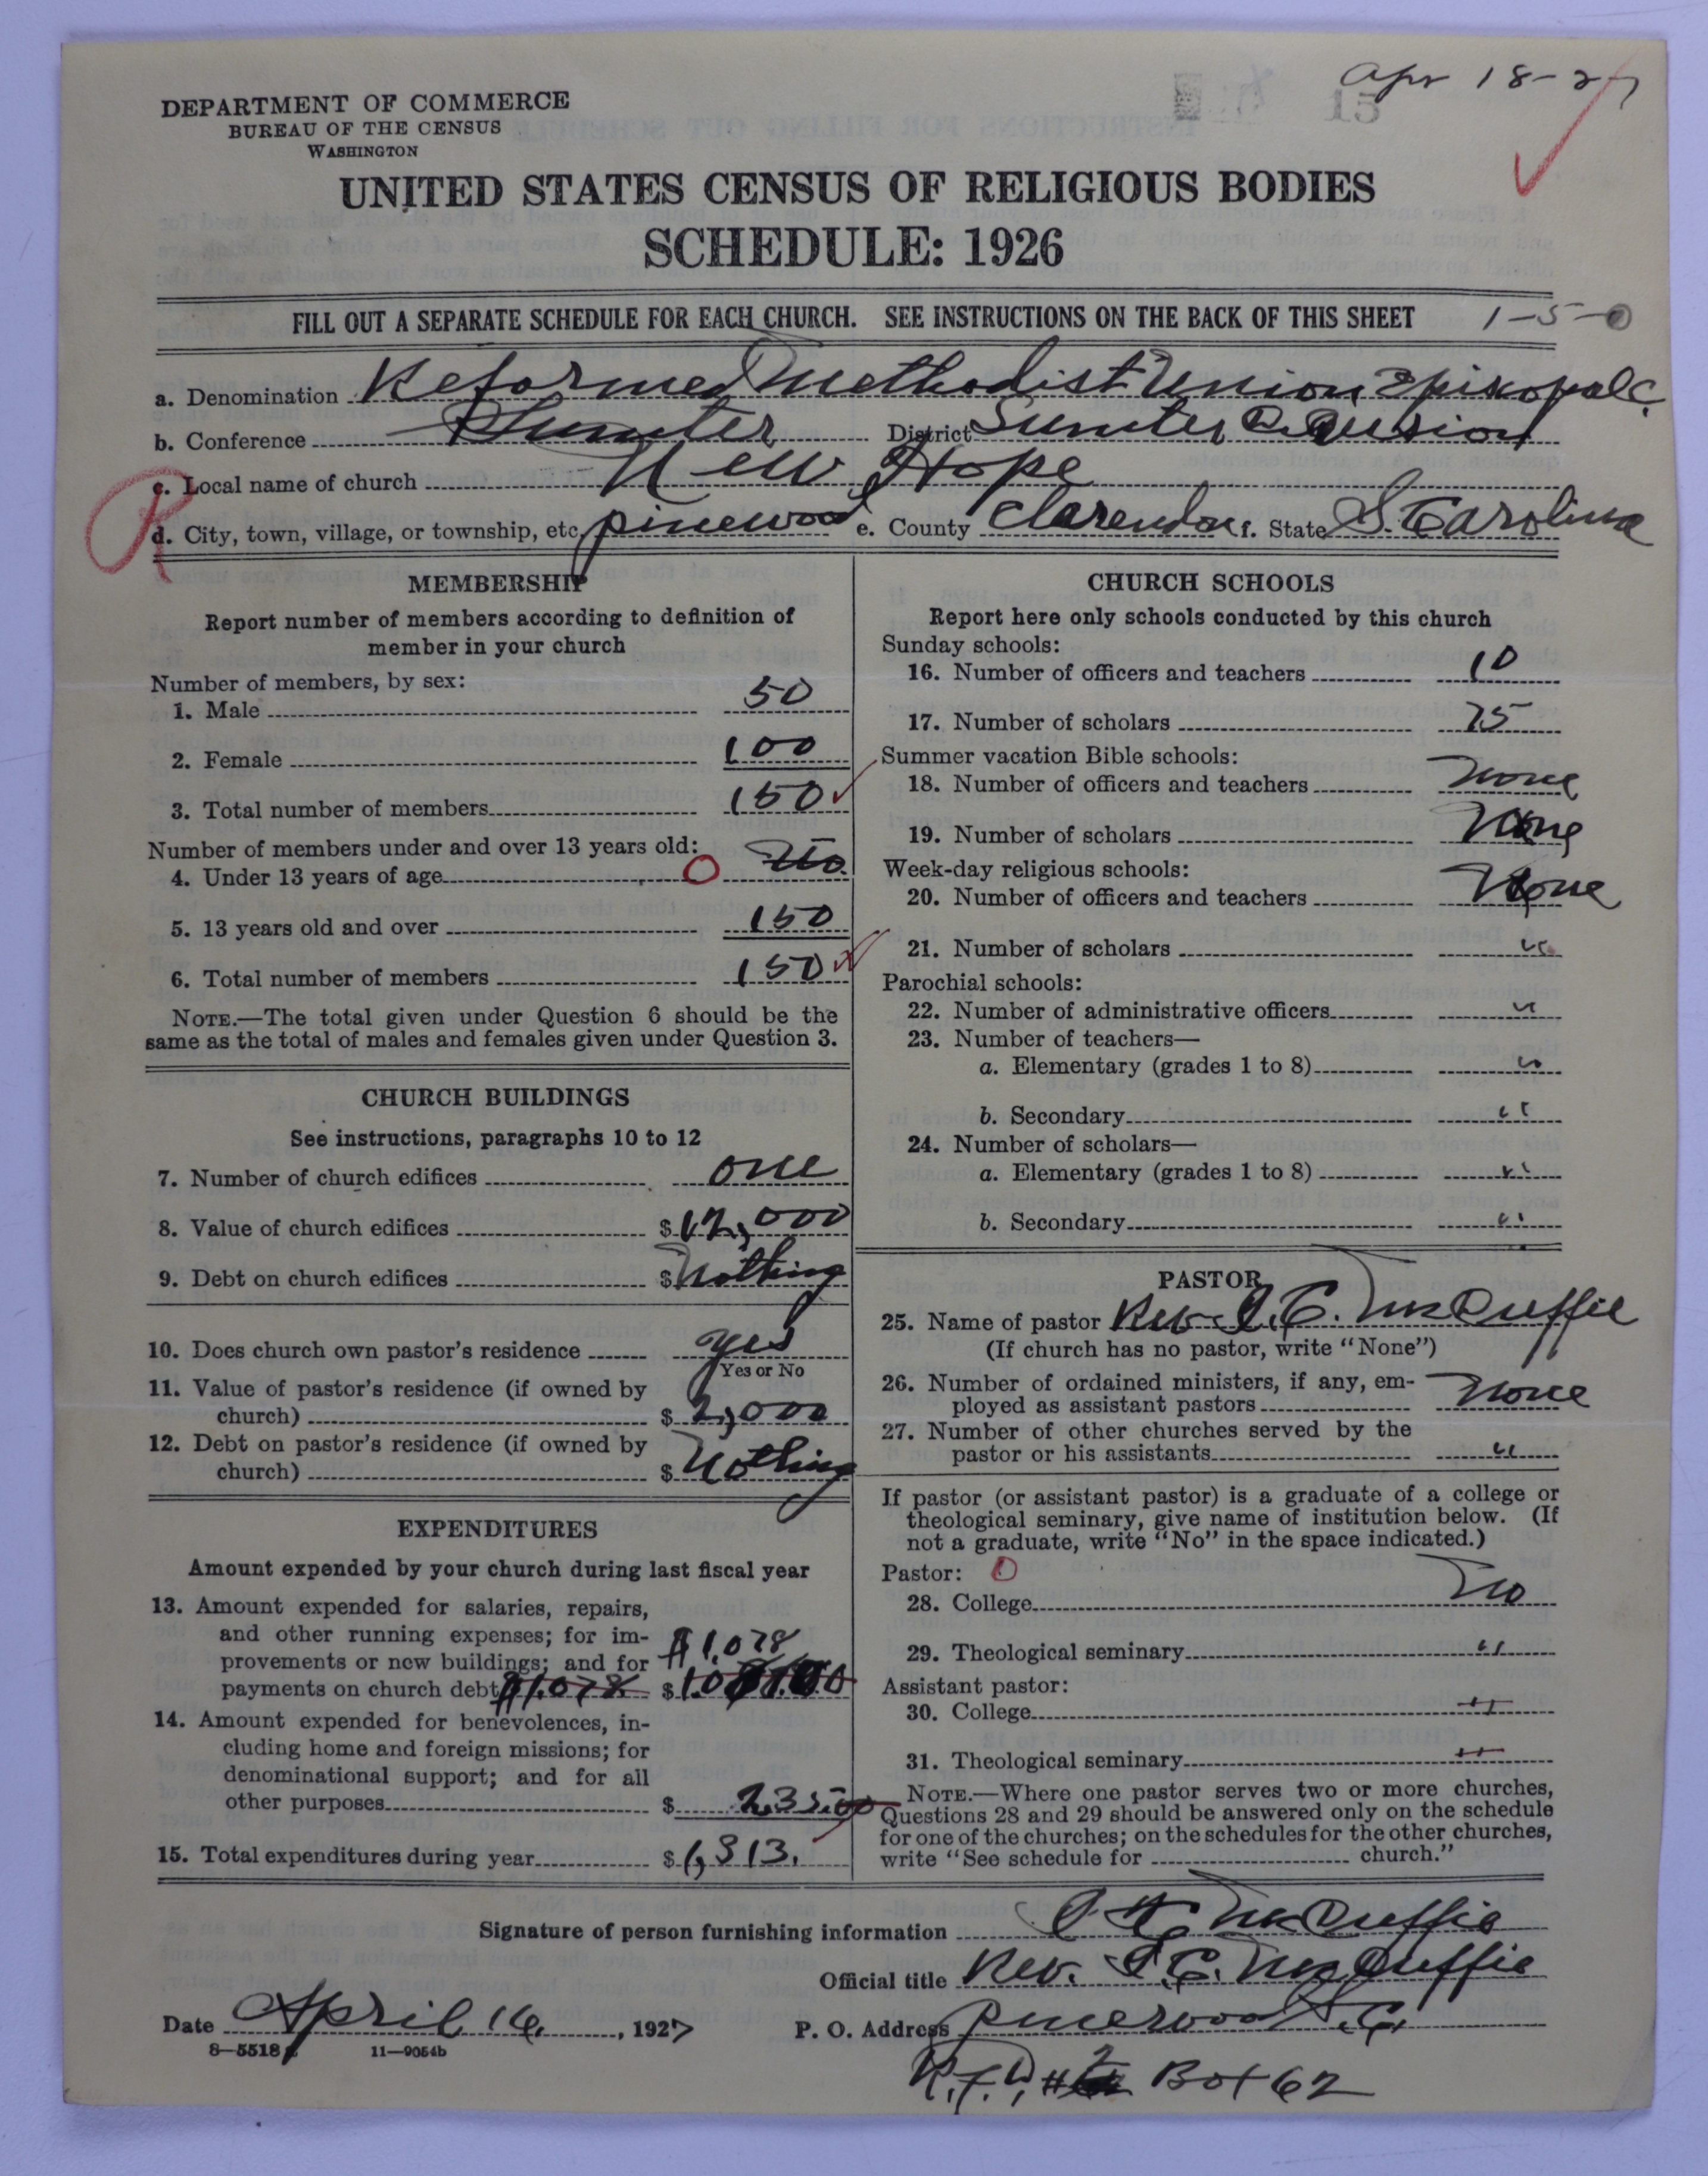 Apr 18-27
15
DEPARTMENT OF COMMERCE
BUREAU OF THE CENSUS
WASHINGTON
UNITED STATES CENSUS OF RELIGIOUS BODIES
SCHEDULE: 1926
FILL OUT A SEPARATE SCHEDULE FOR EACH CHURCH. SEE INSTRUCTIONS ON THE BACK OF THIS SHEET 1-5-0
a. Denomination Reformed Methodist Union Episkopal C.
b. Conference Sumter District Sumter Division
c. Local name of church New Hope
d. City, town, village, or township, etc. pinewood e. County Clarendon f. State S. Carolina
R
MEMBERSHIP
Report number of members according to definition of
member in your church
Number of members, by sex:
1. Male 50
2. Female 100
3. Total number of members 150
Number of members under and over 13 years old:
4. Under 13 years of age 0 No.
5. 13 years old and over 150
6. Total number of members 150
NOTE.—The total given under Question 6 should be the
same as the total of males and females given under Question 3.
CHURCH BUILDINGS
See instructions, paragraphs 10 to 12
7. Number of church edifices one
8. Value of church edifices $12,000
9. Debt on church edifices $Nothing
10. Does church own pastor's residence yes
Yes or No
11. Value of pastor's residence (if owned by
church) $ 2,000
12. Debt on pastor's residence (if owned by
church) $ Nothing
EXPENDITURES
Amount expended by your church during last fiscal year
13. Amount expended for salaries, repairs,
and other running expenses; for im-
provements or new buildings; and for $1.078
payments on church debt $1.078 $
14. Amount expended for benevolences, in-
cluding home and foreign missions; for
denominational support; and for all
other purposes $ 235.00
15. Total expenditures during year $1,313.
CHURCH SCHOOLS
Report here only schools conducted by this church
Sunday schools:
16. Number of officers and teachers 10
17. Number of scholars 75
Summer vacation Bible schools:
18. Number of officers and teachers None
19. Number of scholars None
Week-day religious schools:
20. Number of officers and teachers None
21. Number of scholars "
Parochial schools:
22. Number of administrative officers "
23. Number of teachers—
a. Elementary (grades 1 to 8) "
b. Secondary "
24. Number of scholars—
a. Elementary (grades 1 to 8) "
b. Secondary "
PASTOR
25. Name of pastor Rev. I. C. McDuffie
(If church has no pastor, write "None")
26. Number of ordained ministers, if any, em-
ployed as assistant pastors None
27. Number of other churches served by the
pastor or his assistants "
If pastor (or assistant pastor) is a graduate of a college or
theological seminary, give name of institution below. (If
not a graduate, write "No" in the space indicated.)
Pastor: 0
28. College No
29. Theological seminary "
Assistant pastor:
30. College "
31. Theological seminary "
NOTE.—Where one pastor serves two or more churches,
Questions 28 and 29 should be answered only on the schedule
for one of the churches; on the schedules for the other churches,
write "See schedule for church."
Signature of person furnishing information McDuffie
Official title Rev. I. C. McDuffie
Date April 16, 1927 P. O. Address Pinewood S.C.
8—5518 11—9054b
R.F.D, # 2 Box 62